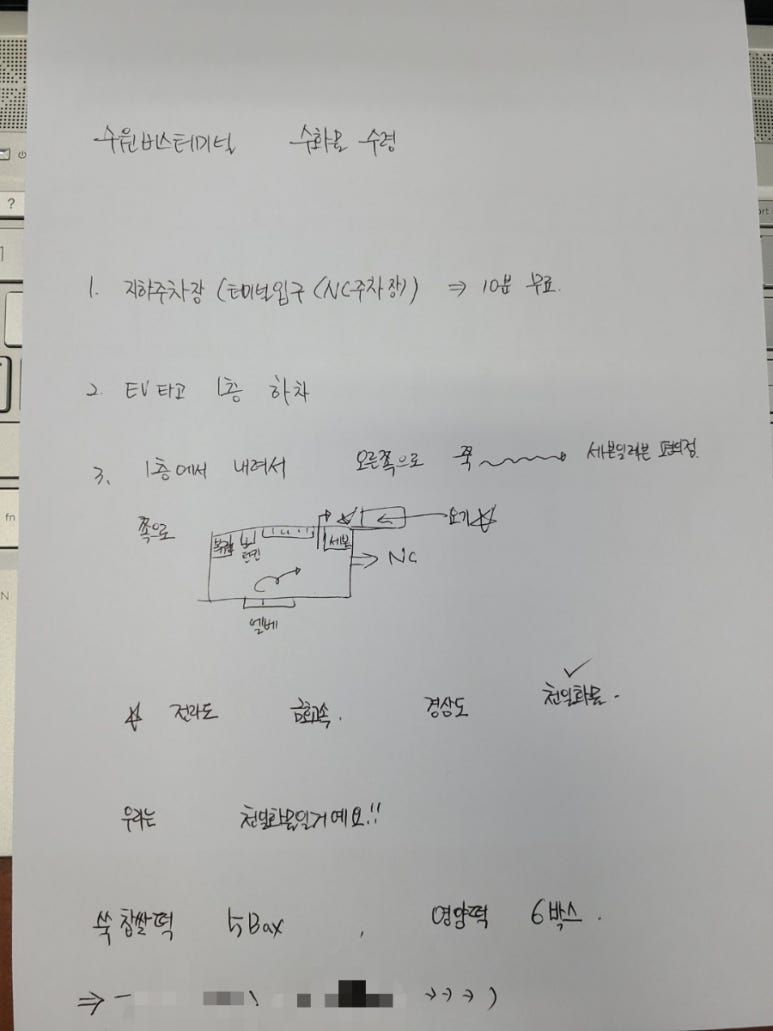 수원버스터미널 수화물 수령
1. 지하주차장 (터미널입구 (NC주차장)) ⇒ 10분 무료.
2. EV타고 1층 하차
3. 1층에서 내려서 오른쪽으로 쭉 → 세븐일레븐 편의점
쪽으로
여기☆
세븐
→ NC
엘베
☆ 전라도 금호고속. 경상도 ✓천일화물.
우리는 천일화물일거예요!!
쑥찹쌀떡 5Box , 영양떡 6박스.